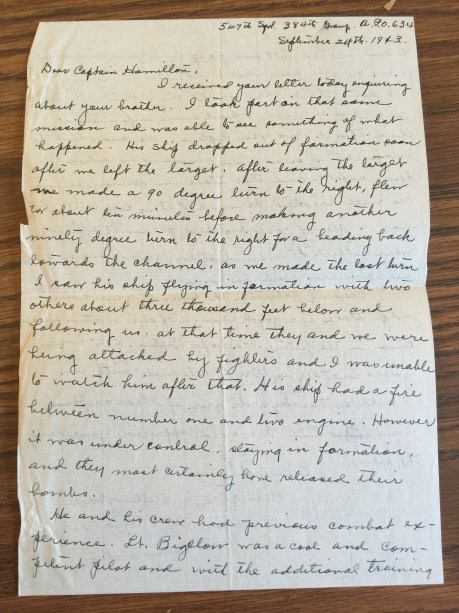 547th Sqd. 384th Group. A.P.O. 634
September 24th. 1943.
Dear Captain Hamilton,
I received your letter today enquiring
about your brother. I took part on that same
mission and was able to see something of what
happened. His ship dropped out of formation soon
after we left the target. After leaving the target
we made a 90 degree turn to the right, flew
for about ten minutes before making another
ninety degree turn to the right for a heading back
towards the channel. As we made the last turn
I saw his ship flying in formation with two
others about three thousand feet below and
following us. At that time they and we were
being attacked by fighters and I was unable
to watch him after that. His ship had a fire
between number one and two engine. However
it was under control, staying in formation,
and they most certainly have released their
bombs.
He and his crew had previous combat ex-
perience. Lt. Bigelow was a cool and com-
petent pilot and with the additional training